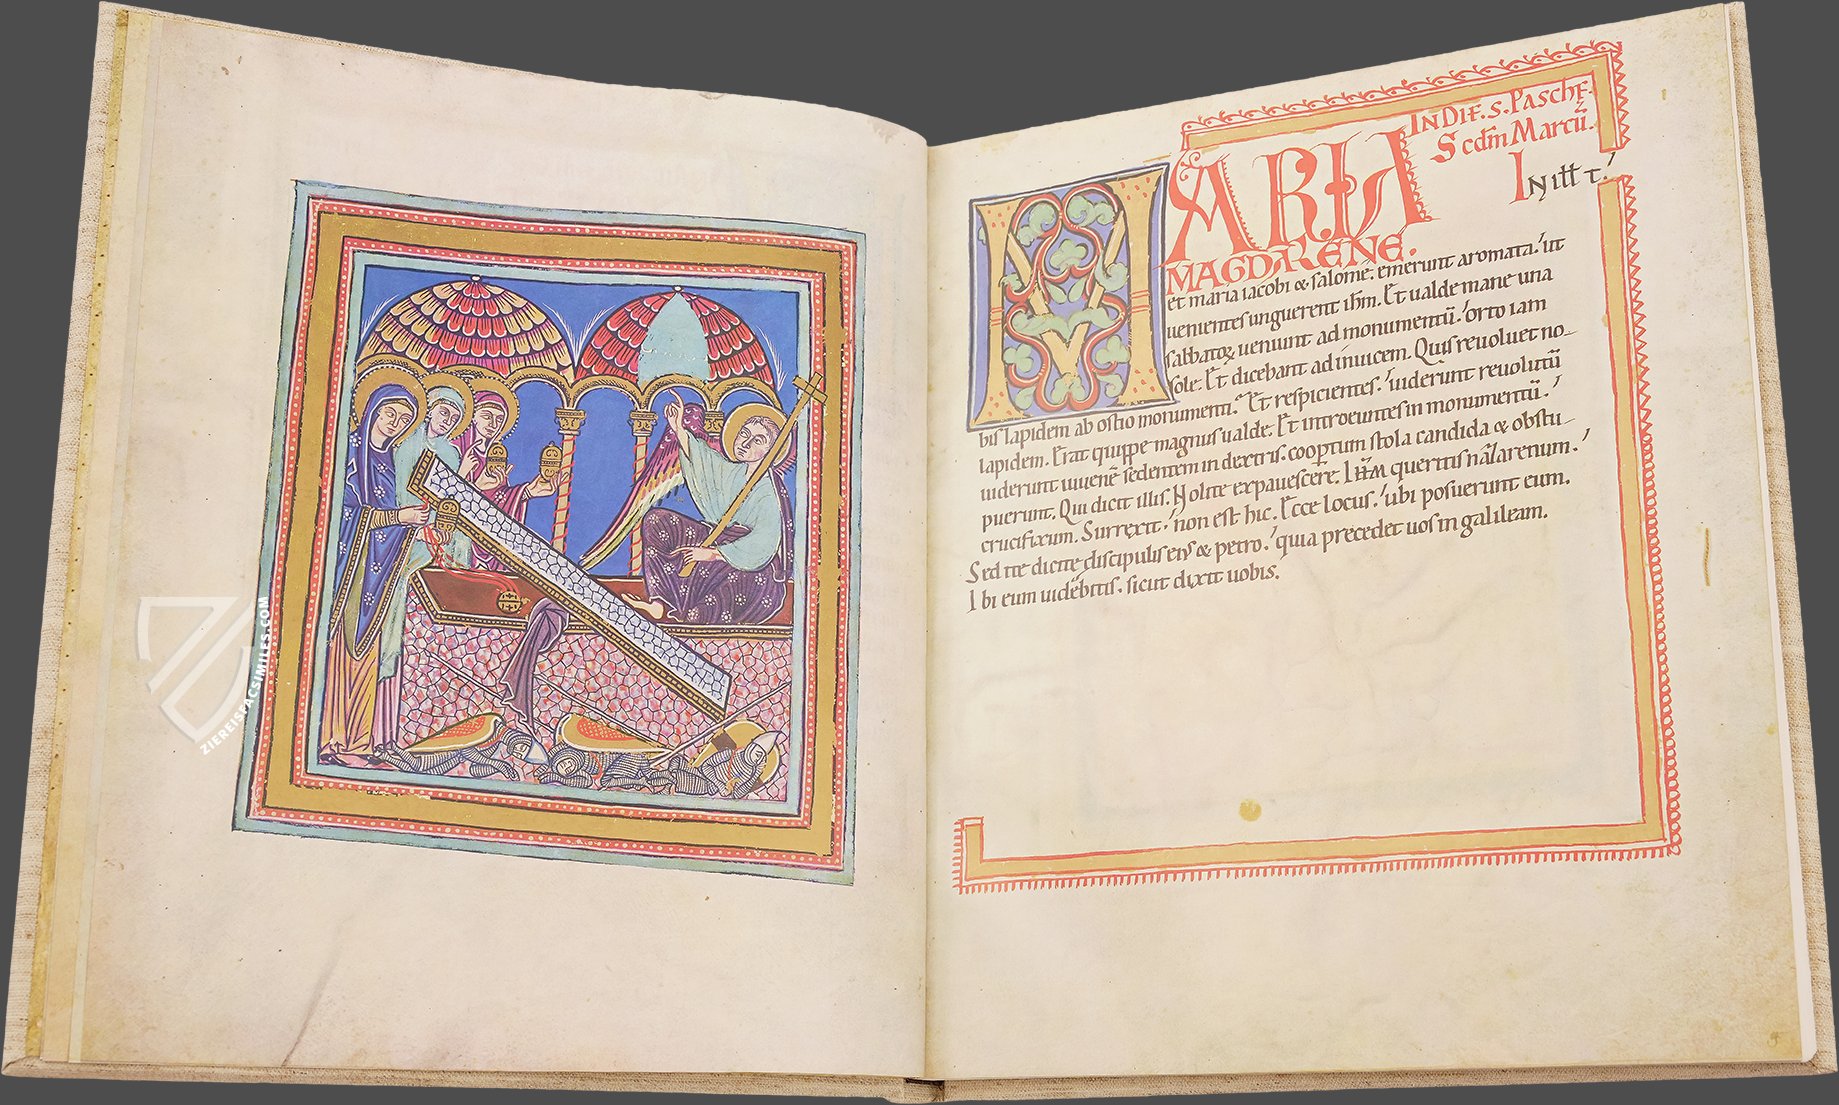 IN DIE. S. PASCHE.
Scdm Marcu.
IN illt t.
MARIA
MAGDALENE.
et maria iacobi & salome. emerunt aromata. ut
uenientes unguerent ihm. Et ualde mane una
sabbatoꝝ ueniunt ad monumentū. orto iam
sole. Et dicebant ad inuicem. Quis reuoluet no
bis lapidem ab ostio monumenti. Et respicientes. uiderunt reuolutū
lapidem. Erat quippe magnus ualde. Et introeuntes in monumentū.
uiderunt iuuenē sedentem in dextris. coopertum stola candida & obstu
puerunt. Qui dicit illis. Nolite expauescere. Ihm queritis nazarenum.
crucifixum. Surrexit. non est hic. Ecce locus. ubi posuerunt eum.
Sed ite dicite discipulis eius & petro. quia precedet uos in galileam.
Ibi eum uidebitis. sicut dixit uobis.
ZIEREISFACSIMILES.COM